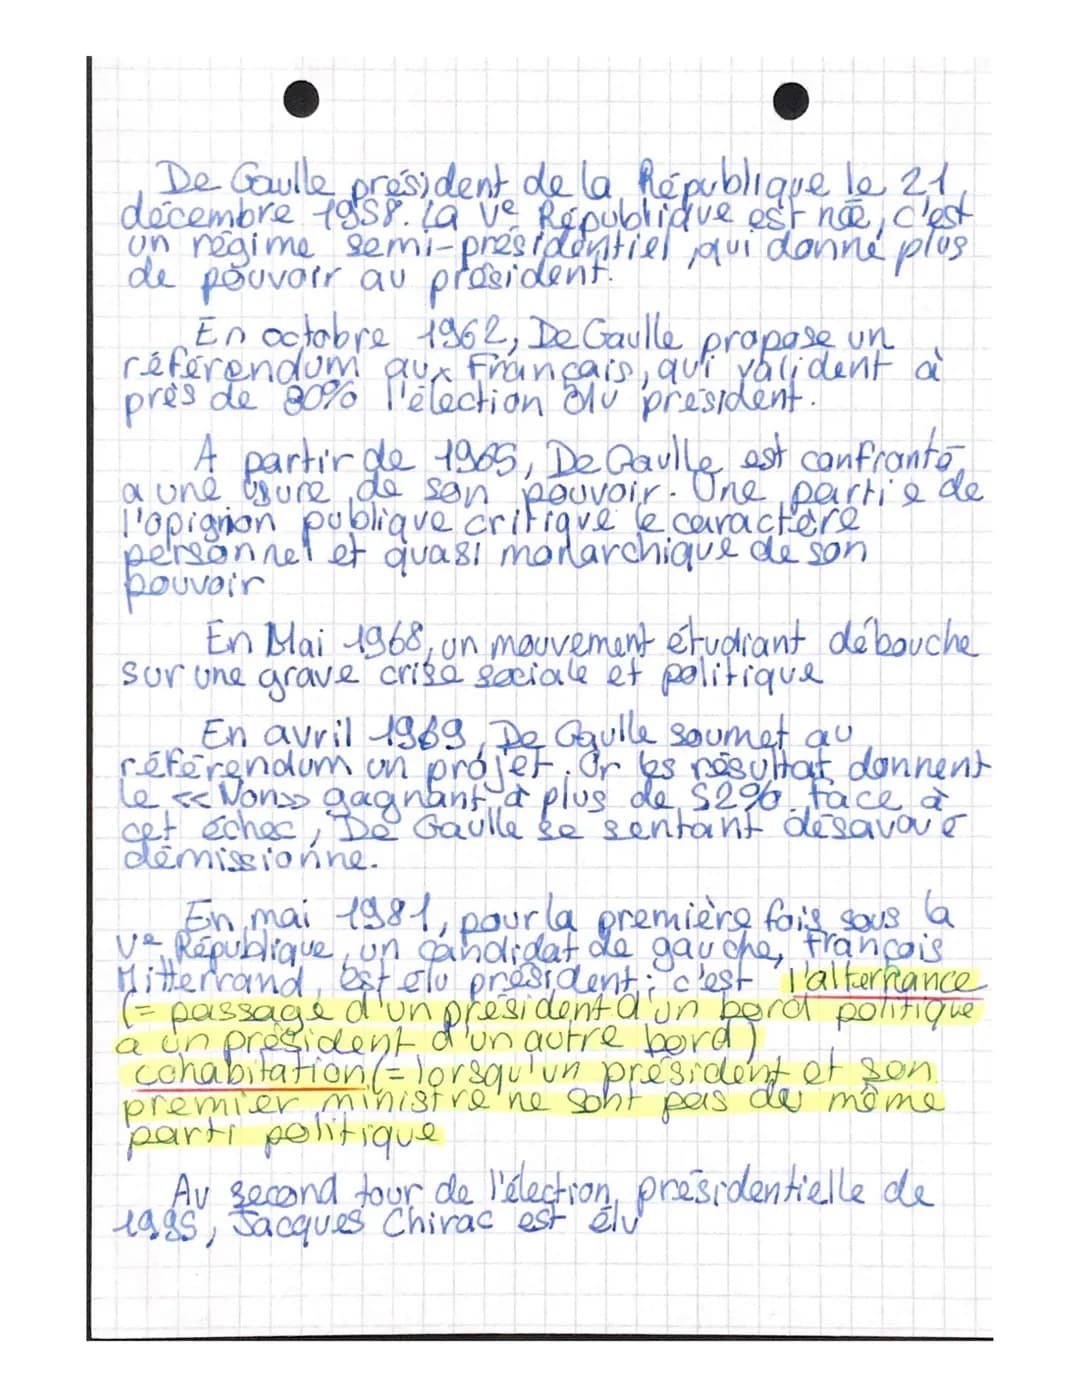 De Gaulle président de la République le 21
décembre 1958. La Ve République est née, c'est
un régime semi-présidentiel qui donne plus
de pouvoir au président.
En octobre 1962, De Gaulle propose un
référendum aux Français, qui valident à
près de 80% l'élection du président.
A partir de 1965, De Gaulle est confronté
a une usure de son pouvoir. Une partie de
l'opignion publique critique le caractère
personnel et quasi monarchique de son
pouvoir
En Mai 1968, un mouvement étudiant débouche
sur une grave crise sociale et politique
En avril 1969, De Gaulle soumet au
référendum un projet. Or les résultat donnent
le «Non» gagnant à plus de 52%. Face à
cet échec, De Gaulle se sentant désavoué
démissionne.
En mai 1981, pour la première fois sous la
Ve République, un candidat de gauche, François
Mitterrand, est élu président; c'est l'alternance
(= passage d'un président d'un bord politique
a un président d'un autre bord)
cohabitation (= lorsqu'un président et son
premier ministre ne sont pas du même
parti politique
Au second tour de l'élection présidentielle de
1995, Jacques Chirac est élu